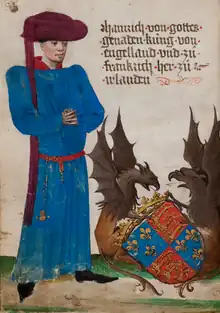 Hainrich · von · gottes ·
genaden · kúng · von ·
engelland · vnd · zů ·
frankrich · her · zů ·
irlanden